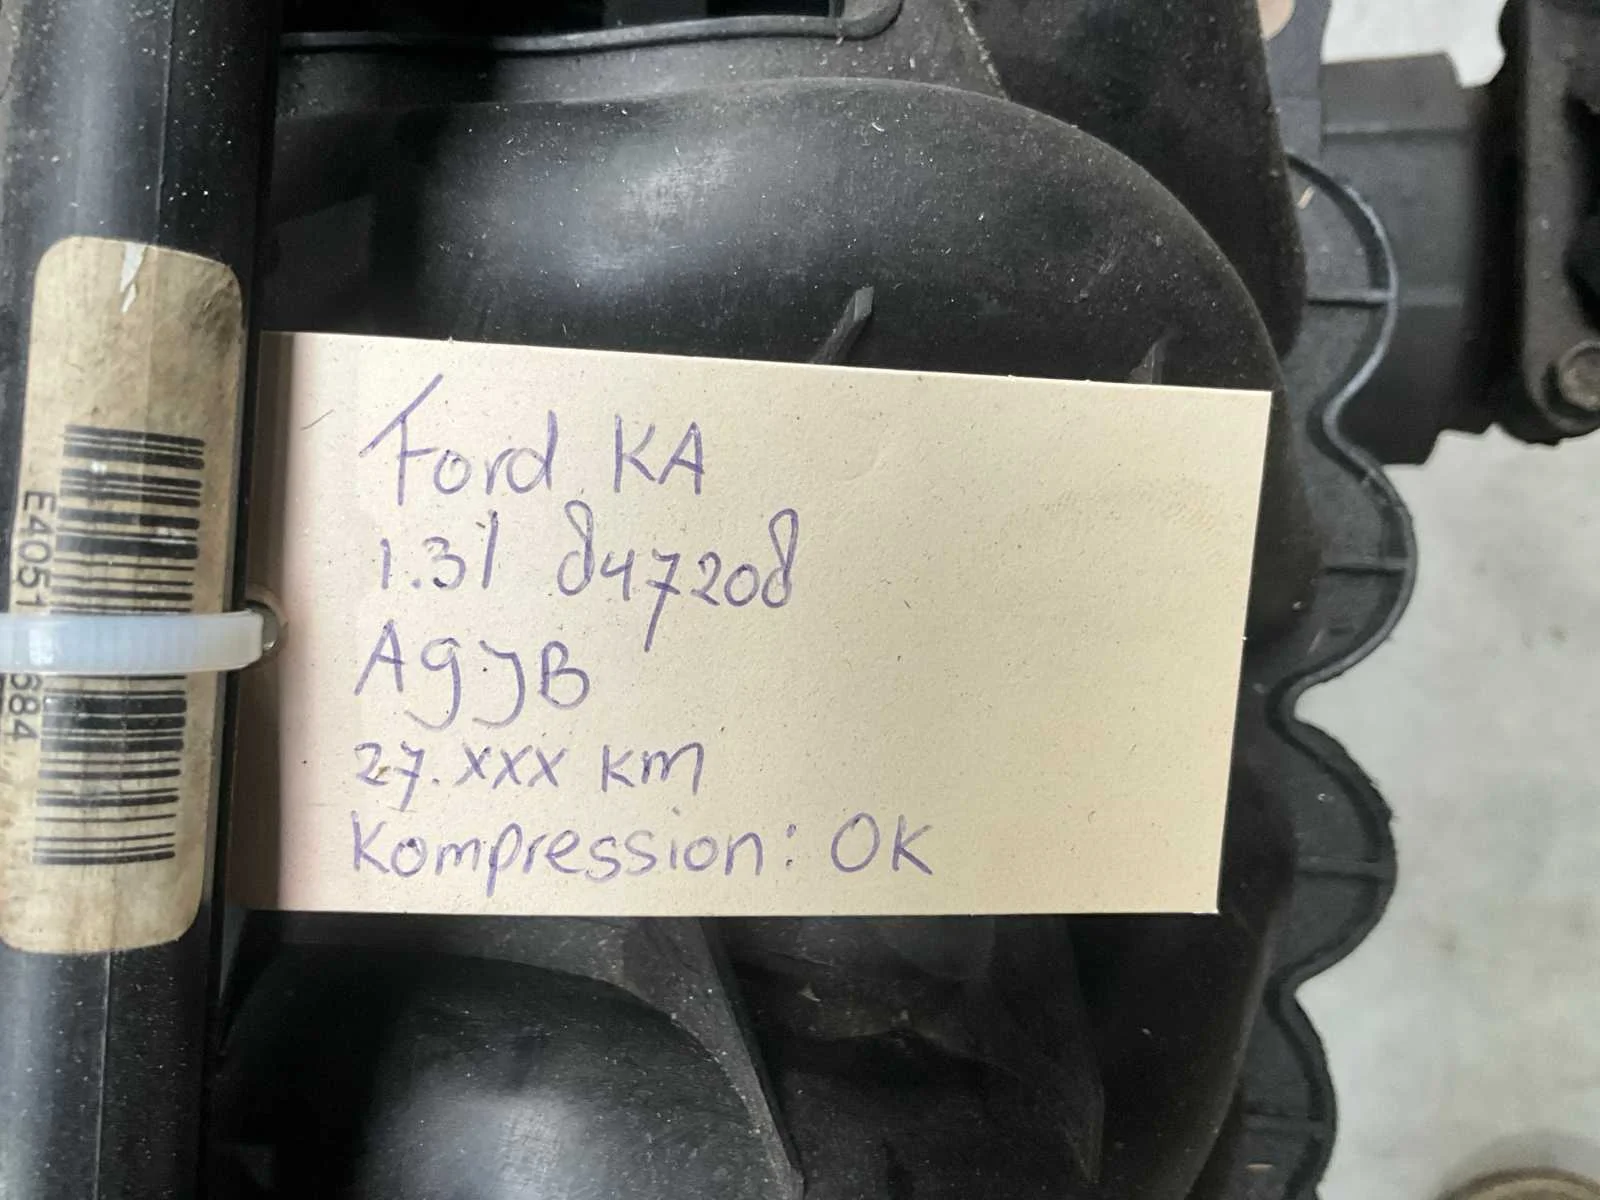 Ford KA
1.3l 847208
A9JB
27.xxx km
Kompression: OK
E4051
684